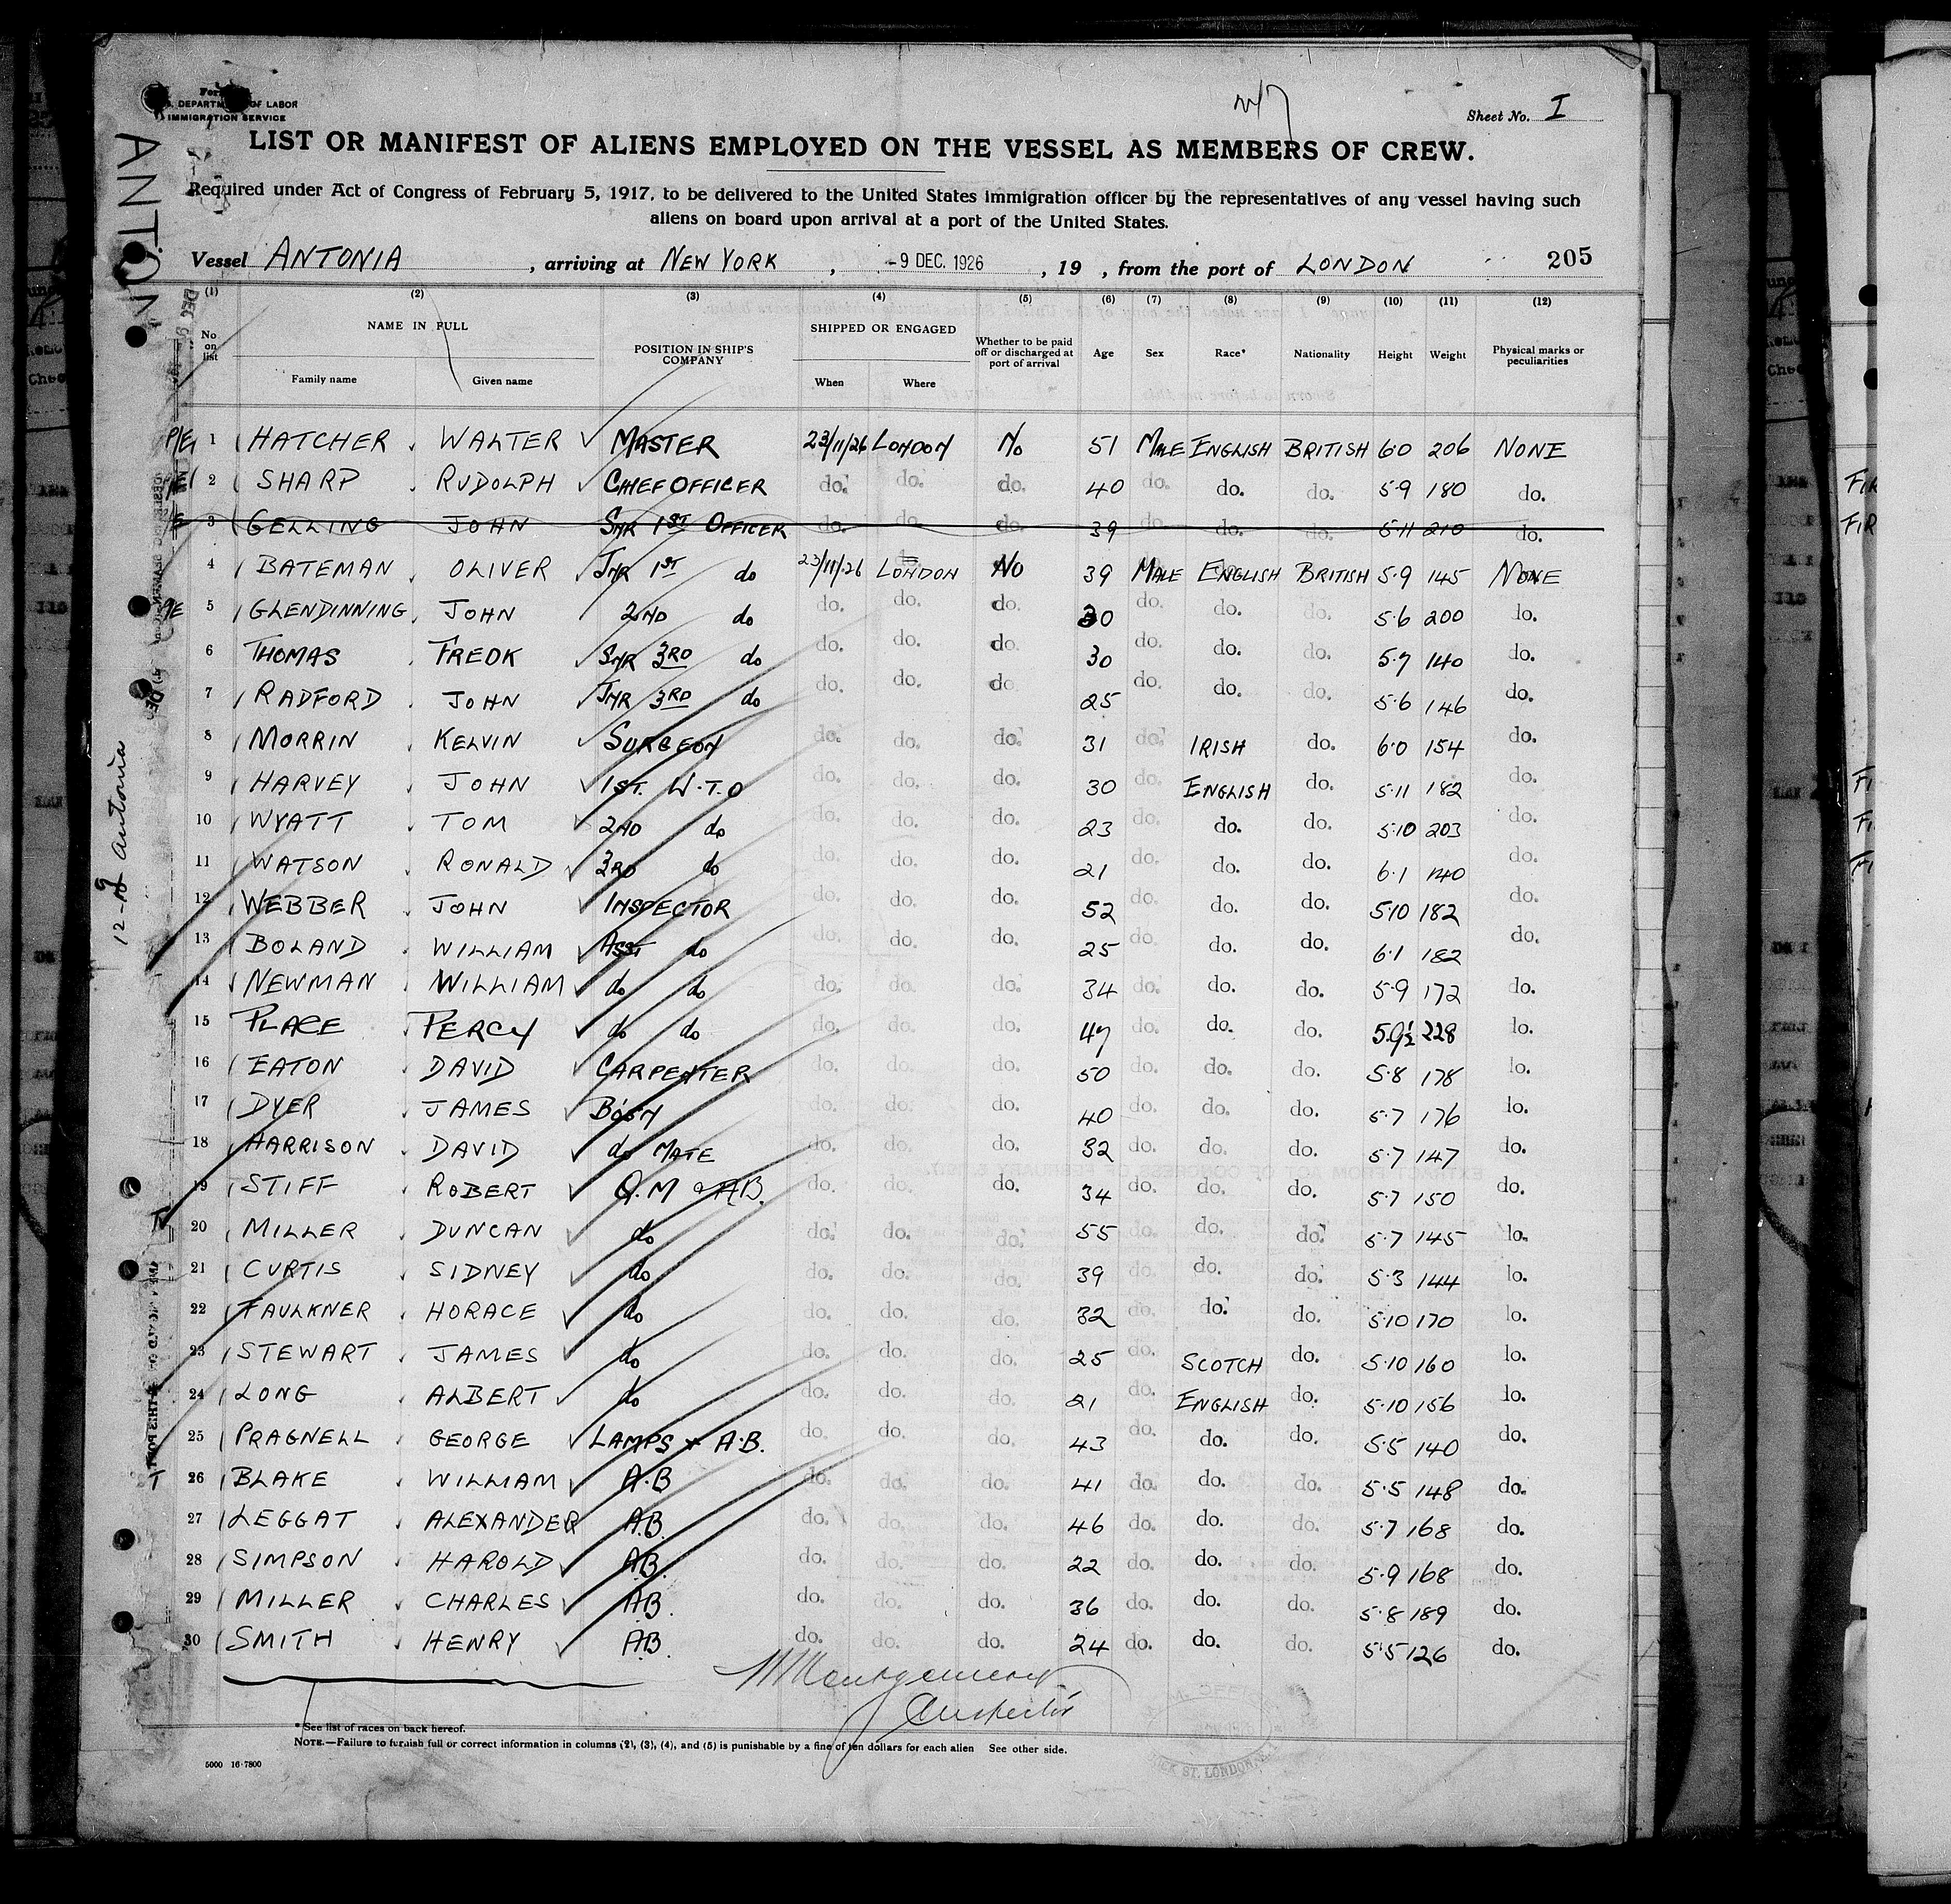 Form
U.S. DEPARTMENT OF LABOR
IMMIGRATION SERVICE
Sheet No. I
LIST OR MANIFEST OF ALIENS EMPLOYED ON THE VESSEL AS MEMBERS OF CREW.
Required under Act of Congress of February 5, 1917, to be delivered to the United States immigration officer by the representatives of any vessel having such
aliens on board upon arrival at a port of the United States.
Vessel ANTONIA, arriving at NEW YORK, -9 DEC. 1926, 19 , from the port of LONDON 205
(1) (2) (3) (4) (5) (6) (7) (8) (9) (10) (11) (12)
No on list NAME IN FULL Family name Given name POSITION IN SHIP'S COMPANY SHIPPED OR ENGAGED When Where Whether to be paid off or discharged at port of arrival Age Sex Race* Nationality Height Weight Physical marks or peculiarities
P/E 1 HATCHER WALTER MASTER 23/11/26 LONDON No 51 MALE ENGLISH BRITISH 6·0 206 NONE
2 SHARP RUDOLPH CHIEF OFFICER do. do. do. 40 do. do. do. 5·9 180 do.
3 GELLING JOHN SNR 1ST OFFICER do. do. do. 39 do. do. do. 5·11 210 do.
4 BATEMAN OLIVER JNR 1ST do 23/11/26 LONDON No 39 MALE ENGLISH BRITISH 5·9 145 NONE
5 GLENDINNING JOHN 2ND do do. do. do. 30 do. do. do. 5·6 200 do.
6 THOMAS FREDK SNR 3RD do do. do. do. 30 do. do. do. 5·7 140 do.
7 RADFORD JOHN JNR 3RD do do. do. do. 25 do. do. do. 5·6 146 do.
8 MORRIN KELVIN SURGEON do. do. do. 31 do. IRISH do. 6·0 154 do.
9 HARVEY JOHN 1ST. W.T.O do. do. do. 30 do. ENGLISH do. 5·11 182 do.
10 WYATT TOM 2ND do do. do. do. 23 do. do. do. 5·10 203 do.
11 WATSON RONALD 3RD do do. do. do. 21 do. do. do. 6·1 140 do.
12 WEBBER JOHN INSPECTOR do. do. do. 52 do. do. do. 5·10 182 do.
13 BOLAND WILLIAM ASST do do. do. do. 25 do. do. do. 6·1 182 do.
14 NEWMAN WILLIAM do do do. do. do. 34 do. do. do. 5·9 172 do.
15 PLACE PERCY do do do. do. do. 47 do. do. do. 5·9½ 228 do.
16 EATON DAVID CARPENTER do. do. do. 50 do. do. do. 5·8 178 do.
17 DYER JAMES BOSN do. do. do. 40 do. do. do. 5·7 176 do.
18 HARRISON DAVID do MATE do. do. do. 32 do. do. do. 5·7 147 do.
19 STIFF ROBERT Q.M & A.B. do. do. do. 34 do. do. do. 5·7 150 do.
20 MILLER DUNCAN do do. do. do. 55 do. do. do. 5·7 145 do.
21 CURTIS SIDNEY do do. do. do. 39 do. do. do. 5·3 144 do.
22 FAULKNER HORACE do do. do. do. 32 do. do. do. 5·10 170 do.
23 STEWART JAMES do do. do. do. 25 do. SCOTCH do. 5·10 160 do.
24 LONG ALBERT do do. do. do. 21 do. ENGLISH do. 5·10 156 do.
25 PRAGNELL GEORGE LAMPS & A.B. do. do. do. 43 do. do. do. 5·5 140 do.
26 BLAKE WILLIAM A.B do. do. do. 41 do. do. do. 5·5 148 do.
27 LEGGAT ALEXANDER A.B. do. do. do. 46 do. do. do. 5·7 168 do.
28 SIMPSON HAROLD A.B. do. do. do. 22 do. do. do. 5·9 168 do.
29 MILLER CHARLES A.B. do. do. do. 36 do. do. do. 5·8 189 do.
30 SMITH HENRY A.B. do. do. do. 24 do. do. do. 5·5 126 do.
Montgomery
Inspector
* See list of races on back hereof.
NOTE.—Failure to furnish full or correct information in columns (2), (3), (4), and (5) is punishable by a fine of ten dollars for each alien See other side.
5000 16-7800
ANTONIA
12-9 Antonia